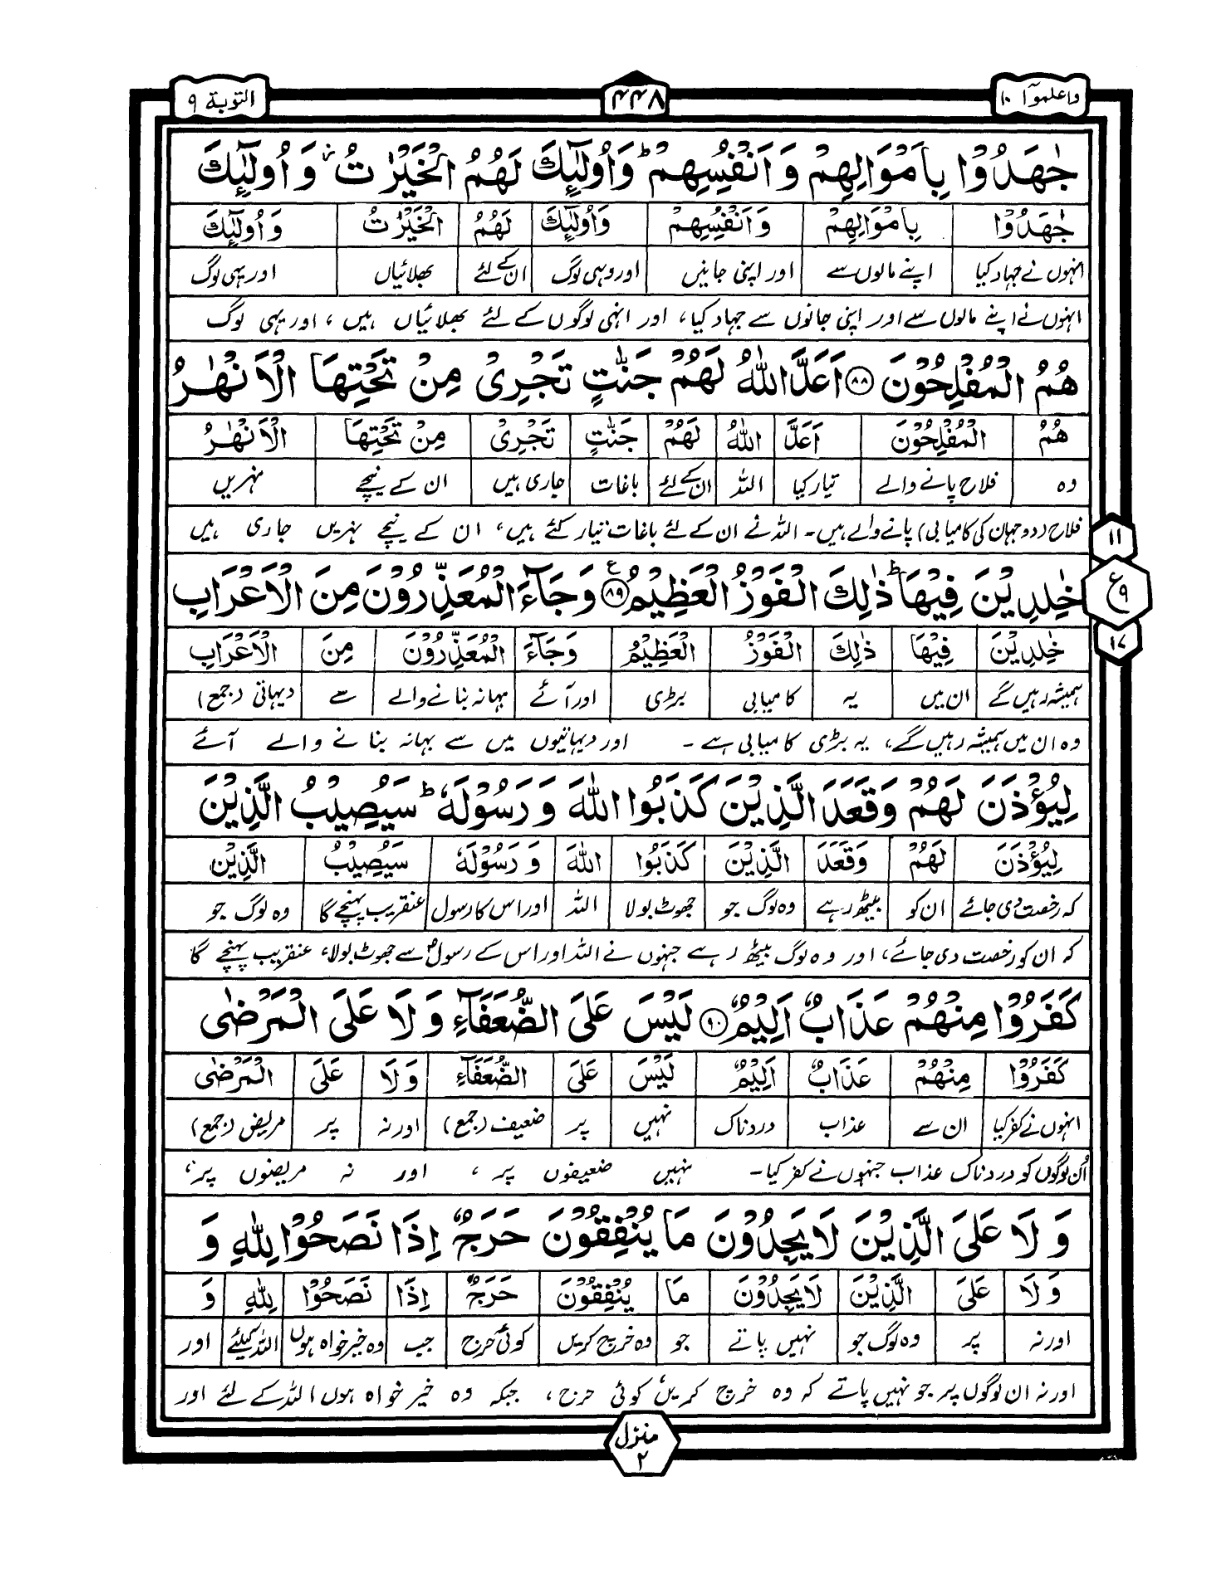 واعلموآ ١٠
٤٤٨
التوبة ٩
جٰهَدُوْا بِاَمْوَالِهِمْ وَ اَنْفُسِهِمْ ؕ وَ اُولٰٓئِكَ لَهُمُ الْخَيْرٰتُ ؗ وَ اُولٰٓئِكَ
جٰهَدُوْا بِاَمْوَالِهِمْ وَ اَنْفُسِهِمْ وَاُولٰٓئِكَ لَهُمُ الْخَيْرٰتُ وَ اُولٰٓئِكَ
انہوں نے جہاد کیا اپنے مالوں سے اور اپنی جانیں اور وہی لوگ ان کے لئے بھلائیاں اور یہی لوگ
انہوں نے اپنے مالوں سے اور اپنی جانوں سے جہاد کیا، اور انہی لوگوں کے لئے بھلائیاں ہیں، اور یہی لوگ
هُمُ الْمُفْلِحُوْنَ ۝۸۸ اَعَدَّ اللّٰهُ لَهُمْ جَنّٰتٍ تَجْرِىْ مِنْ تَحْتِهَا الْاَنْهٰرُ
هُمُ الْمُفْلِحُوْنَ اَعَدَّ اللّٰهُ لَهُمْ جَنّٰتٍ تَجْرِىْ مِنْ تَحْتِهَا الْاَنْهٰرُ
وہ فلاح پانے والے تیار کیا اللہ ان کے لئے باغات جاری ہیں ان کے نیچے نہریں
فلاح (دو جہان کی کامیابی) پانے والے ہیں۔ اللہ نے ان کے لئے باغات تیار کئے ہیں، ان کے نیچے نہریں جاری ہیں
١١
ع ٩
١٧
خٰلِدِيْنَ فِيْهَا ؕ ذٰلِكَ الْفَوْزُ الْعَظِيْمُ ۝۸۹ وَ جَآءَ الْمُعَذِّرُوْنَ مِنَ الْاَعْرَابِ
خٰلِدِيْنَ فِيْهَا ذٰلِكَ الْفَوْزُ الْعَظِيْمُ وَ جَآءَ الْمُعَذِّرُوْنَ مِنَ الْاَعْرَابِ
ہمیشہ رہیں گے ان میں یہ کامیابی بڑی اور آئے بہانہ بنانے والے سے دیہاتی (جمع)
وہ ان میں ہمیشہ رہیں گے، یہ بڑی کامیابی ہے۔ اور دیہاتیوں میں سے بہانہ بنانے والے آئے
لِيُؤْذَنَ لَهُمْ وَقَعَدَ الَّذِيْنَ كَذَبُوا اللّٰهَ وَ رَسُوْلَهٗ ؕ سَيُصِيْبُ الَّذِيْنَ
لِيُؤْذَنَ لَهُمْ وَقَعَدَ الَّذِيْنَ كَذَبُوا اللّٰهَ وَ رَسُوْلَهٗ سَيُصِيْبُ الَّذِيْنَ
کہ رخصت دی جائے ان کو بیٹھ رہے وہ لوگ جو جھوٹ بولا اللہ اور اس کا رسول عنقریب پہنچے گا وہ لوگ جو
کہ ان کو رخصت دی جائے، اور وہ لوگ بیٹھ رہے جنہوں نے اللہ اور اس کے رسولؐ سے جھوٹ بولا، عنقریب پہنچے گا
كَفَرُوْا مِنْهُمْ عَذَابٌ اَلِيْمٌ ۝۹۰ لَيْسَ عَلَى الضُّعَفَآءِ وَ لَا عَلَى الْمَرْضٰى
كَفَرُوْا مِنْهُمْ عَذَابٌ اَلِيْمٌ لَيْسَ عَلَى الضُّعَفَآءِ وَ لَا عَلَى الْمَرْضٰى
انہوں نے کفر کیا ان سے عذاب دردناک نہیں پر ضعیف (جمع) اور نہ پر مریض (جمع)
اُن لوگوں کو دردناک عذاب جنہوں نے کفر کیا۔ نہیں ضعیفوں پر، اور نہ مریضوں پر،
وَ لَا عَلَى الَّذِيْنَ لَا يَجِدُوْنَ مَا يُنْفِقُوْنَ حَرَجٌ اِذَا نَصَحُوْا لِلّٰهِ وَ
وَ لَا عَلَى الَّذِيْنَ لَا يَجِدُوْنَ مَا يُنْفِقُوْنَ حَرَجٌ اِذَا نَصَحُوْا لِلّٰهِ وَ
اور نہ پر وہ لوگ جو نہیں پاتے جو وہ خرچ کریں کوئی حرج جب وہ خیر خواہ ہوں اللہ کیلئے اور
اور نہ ان لوگوں پر جو نہیں پاتے کہ وہ خرچ کریں کوئی حرج، جبکہ وہ خیر خواہ ہوں اللہ کے لئے اور
منزل ٢